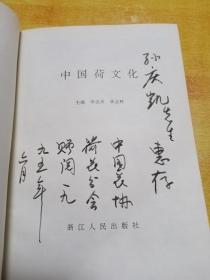 中国荷文化
主编
孙庆凯先生
惠存
中国花协
荷花分会
赠阅一九
九五年
六月
浙江人民出版社